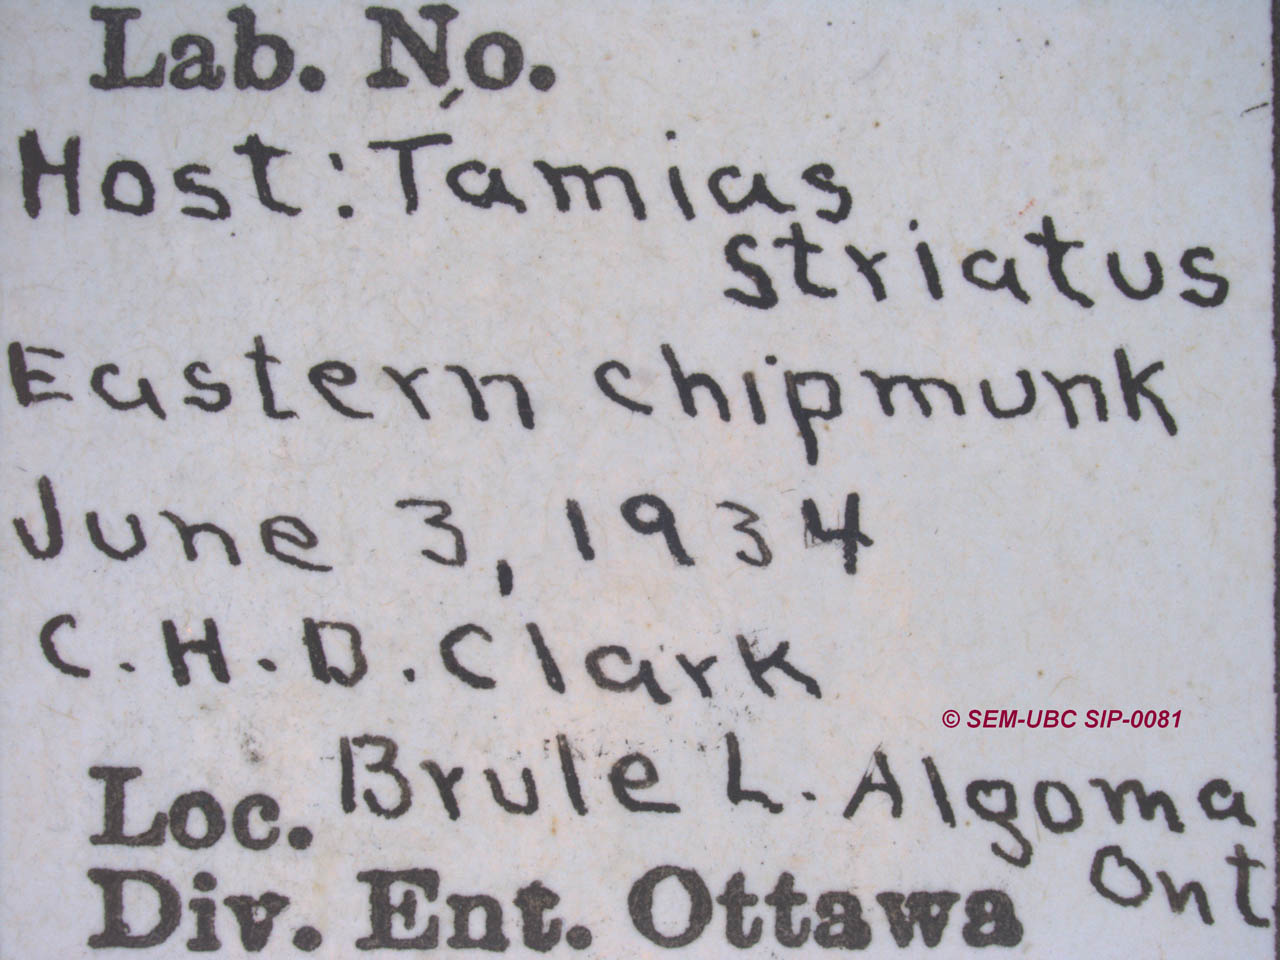 Lab. No.
Host: Tamias
striatus
Eastern chipmunk
June 3, 1934
C.H.D. Clark
© SEM-UBC SIP-0081
Loc. Brule L. Algoma
Ont
Div. Ent. Ottawa